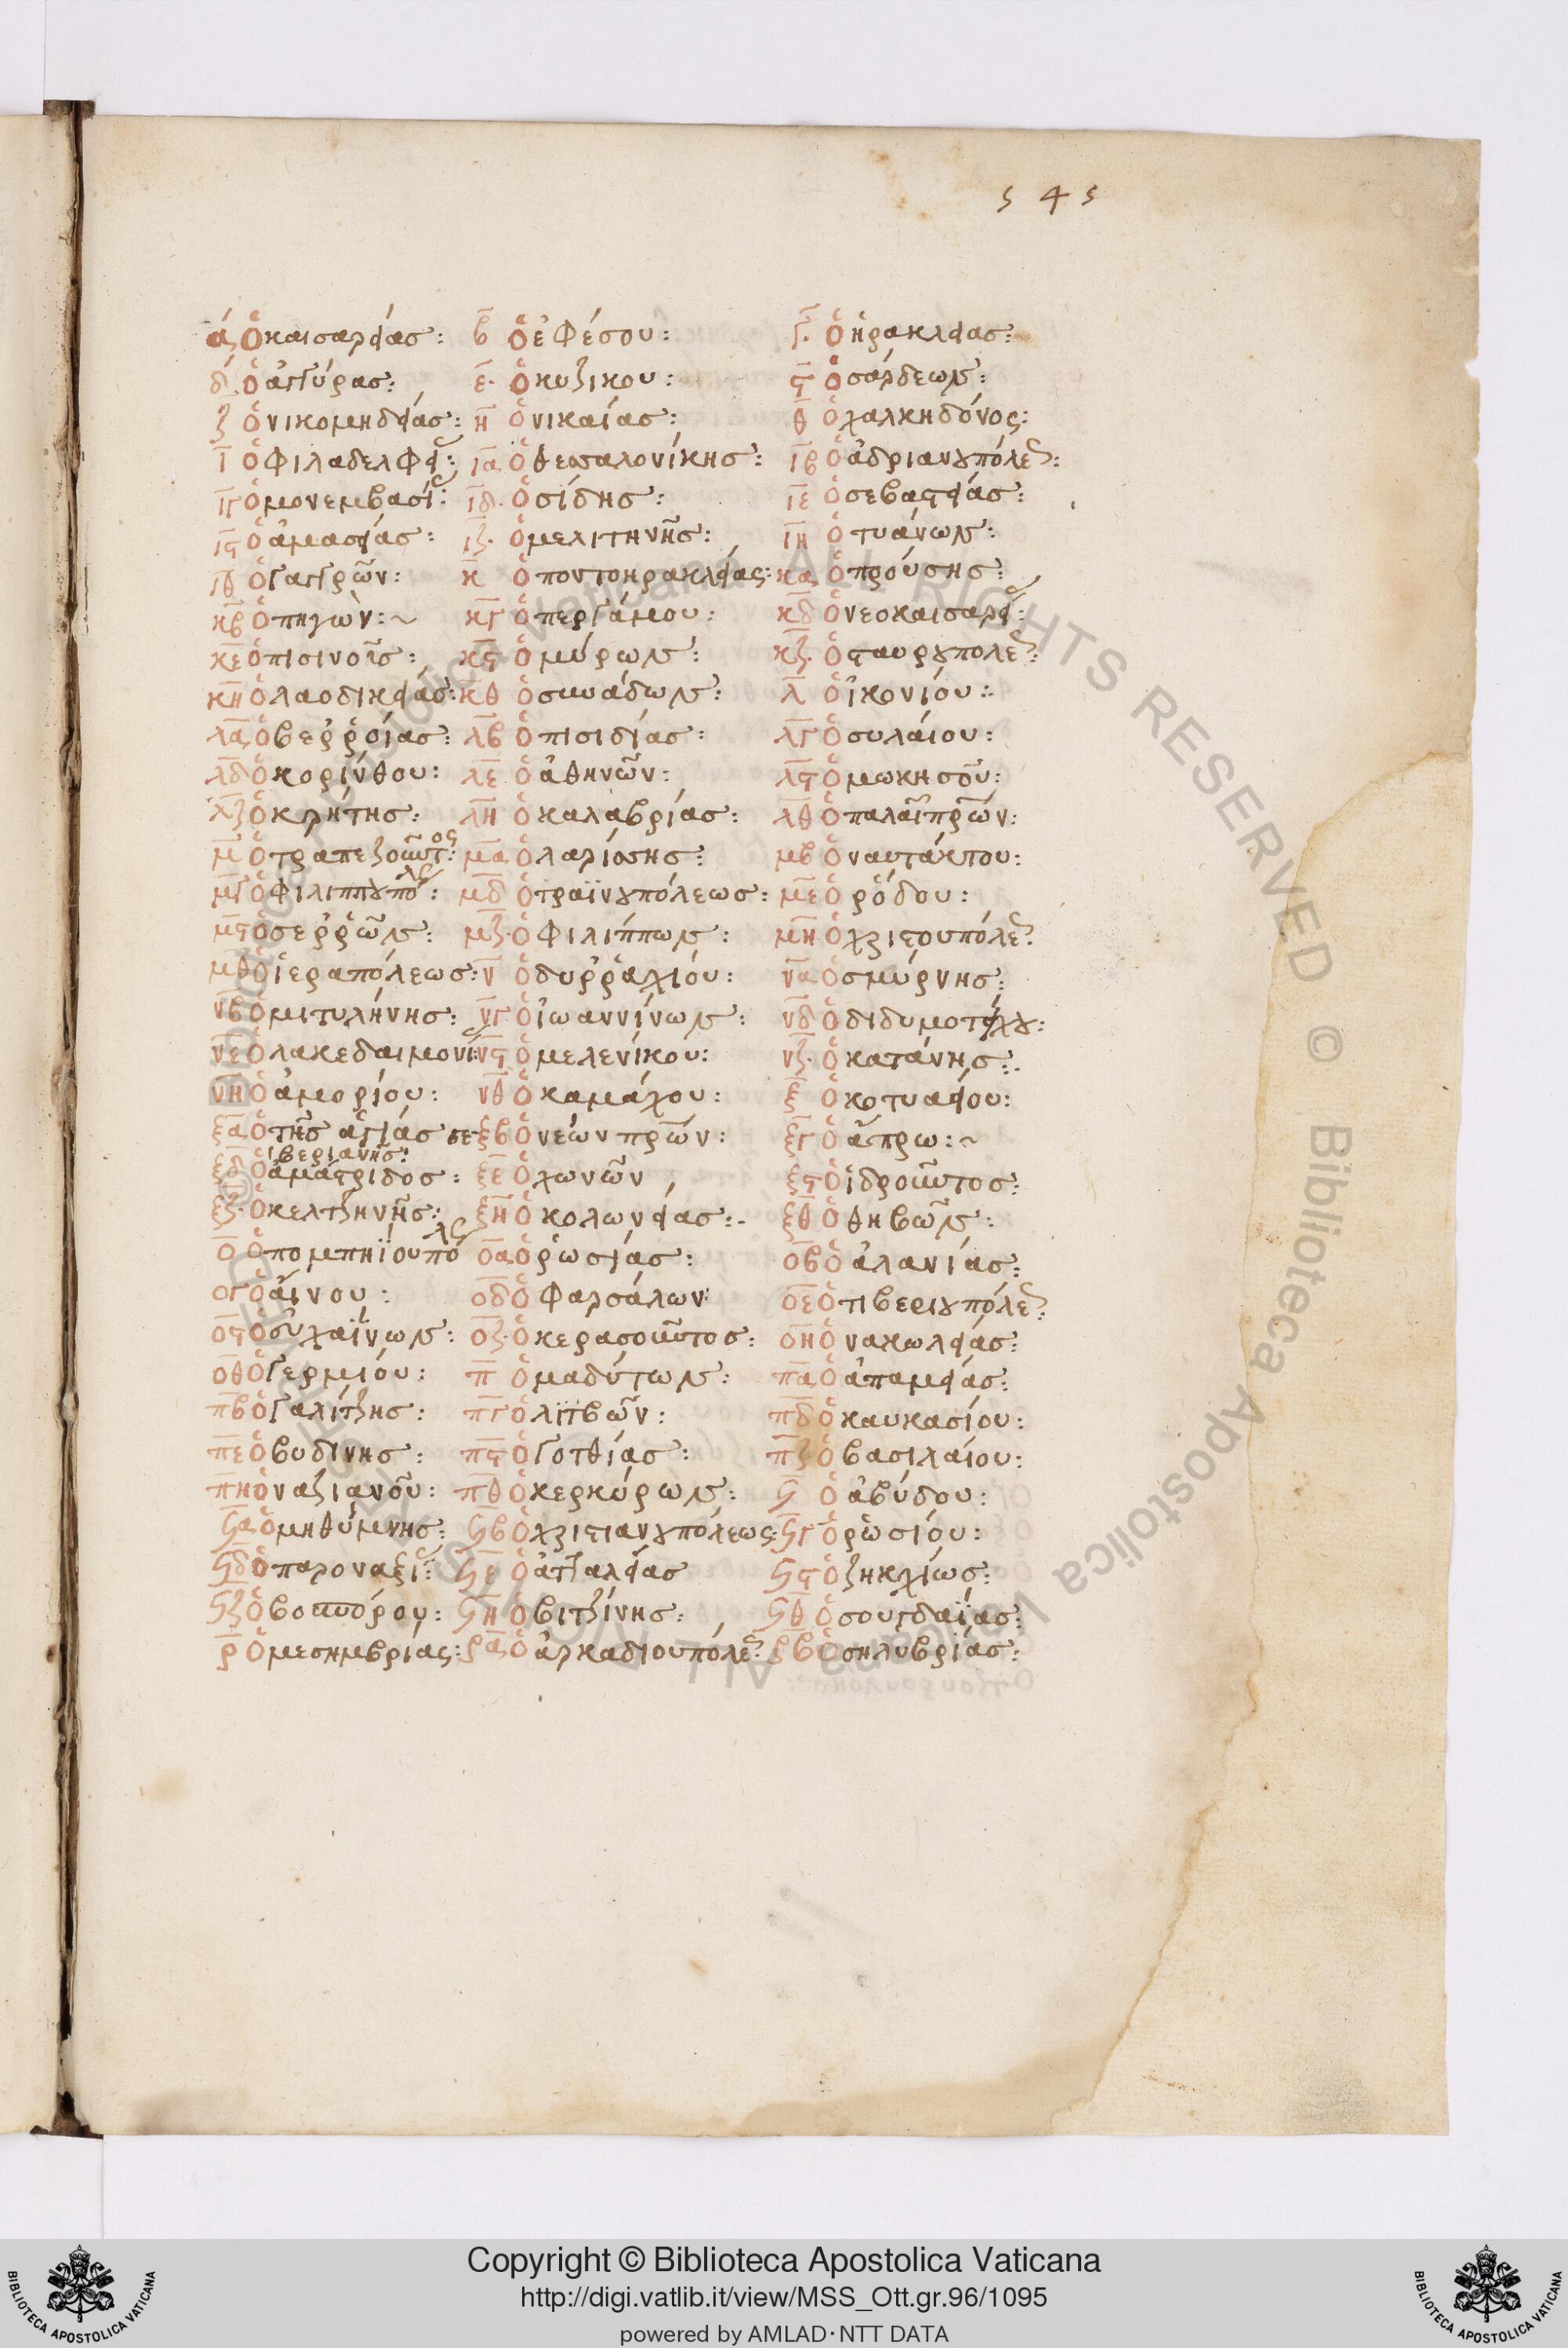 545
α ὁ καισαρείας: β ὁ ἐφέσου: γ ὁ ἡρακλείας:
δ ὁ ἀγγύρας: ε ὁ κυζικου: ϛ ὁ σάρδεων:
ζ ὁ νικομηδείας: η ὁ νικαίας: θ ὁ χαλκηδόνος:
ι ὁ φιλαδελφεί: ια ὁ θεσσαλονίκης: ιβ ὁ ἀδριανουπόλε:
ιγ ὁ μονεμβασί: ιδ ὁ σίδης: ιε ὁ σεβαστείας:
ιϛ ὁ ἀμασείας: ιζ ὁ μελιτηνῆς: ιη ὁ τυάνων:
ιθ ὁ γαγγρῶν: κ ὁ ποντοηρακλείας: κα ὁ προύσης:
κβ ὁ πηγῶν:~ κγ ὁ περγάμου: κδ ὁ νεοκαισαρεί:
κε ὁ πισινοῖς: κϛ ὁ μύρων: κζ ὁ σταυρουπολε:
κη ὁ λαοδικείας: κθ ὁ συνάδων: λ ὁ ἰκονίου:
λα ὁ βερροίας: λβ ὁ πισιδίας: λγ ὁ συλαίου:
λδ ὁ κορίνθου: λε ὁ ἀθηνῶν: λϛ ὁ μωκησοῦ:
λζ ὁ κρήτης: λη ὁ καλαβρίας: λθ ὁ παλαῖ πρῶν:
μ ὁ τραπεζοῦντος: μα ὁ λαρίσσης: μβ ὁ ναυτάκτου:
μγ ὁ φιλιππουπόλς: μδ ὁ τραϊνουπόλεως: με ὁ ῥόδου:
μϛ ὁ σερρῶν: μζ ὁ φιλίππων: μη ὁ χριστουπόλε:
μθ ὁ ἱεραπόλεως: ν ὁ δυρραχίου: να ὁ σμύρνης:
νβ ὁ μιτυλήνης: νγ ὁ ἰωαννίνων: νδ ὁ διδυμοτείχου:
νε ὁ λακεδαιμονί: νϛ ὁ μελενίκου: νζ ὁ κατάνης:
νη ὁ ἀμορίου: νθ ὁ καμάχου: ξ ὁ κοτυαείου:
ξα ὁ τῆς ἁγίας σε- ξβ ὁ νέων πρῶν: ξγ ὁ ἄσπρω:~
ἰβεριανῆς:
ξδ ὁ ἀμάστριδος: ξε ὁ χωνῶν ξϛ ὁ ἱδροῦντος:
ξζ ὁ κελτζηνῆς: ξη ὁ κολωνείας: ξθ ὁ θηβῶν:
ο ὁ πομπηϊουπόλς οα ὁ ῥωσίας: οβ ὁ ἀλανίας:
ογ ὁ αἴνου: οδ ὁ φαρσάλων: οε ὁ τιβεριουπόλε:
οϛ ὁ εὐχαΐνων: οζ ὁ κερασοῦντος: οη ὁ νακωλείας:
οθ ὁ γερμίου: π ὁ μαδύτων: πα ὁ ἀπαμείας:
πβ ὁ γαλίτζης: πγ ὁ λιτβῶν: πδ ὁ καυκασίου:
πε ὁ βυδινης: πϛ ὁ γοτθίας: πζ ὁ βασιλαίου:
πη ὁ ναζιανοῦ: πθ ὁ κερκύρων: ϟ ὁ ἀβύδου:
ϟα ὁ μηθύμνης: ϟβ ὁ χριστιανουπόλεως: ϟγ ὁ ῥωσίου:
ϟδ ὁ παροναξί: ϟε ὁ ἀτταλείας ϟϛ ὁ ζηκχίως:
ϟζ ὁ βοσπόρου: ϟη ὁ βιτζίνης: ϟθ ὁ σουγδαίας:
ρ ὁ μεσημβρίας: ρα ὁ ἀρκαδιουπόλε: ρβ ὁ σηλυβρίας:
© Biblioteca Apostolica Vaticana ALL RIGHTS RESERVED
Copyright © Biblioteca Apostolica Vaticana
http://digi.vatlib.it/view/MSS_Ott.gr.96/1095
powered by AMLAD·NTT DATA
BIBLIOTECA APOSTOLICA VATICANA
BIBLIOTECA APOSTOLICA VATICANA